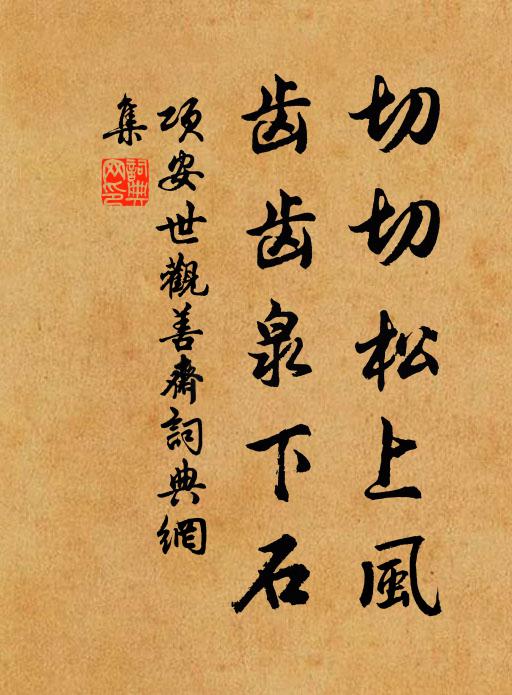 切切松上風
齿齿泉下石
項安世觀善齋詞典網
集
詞典
网印